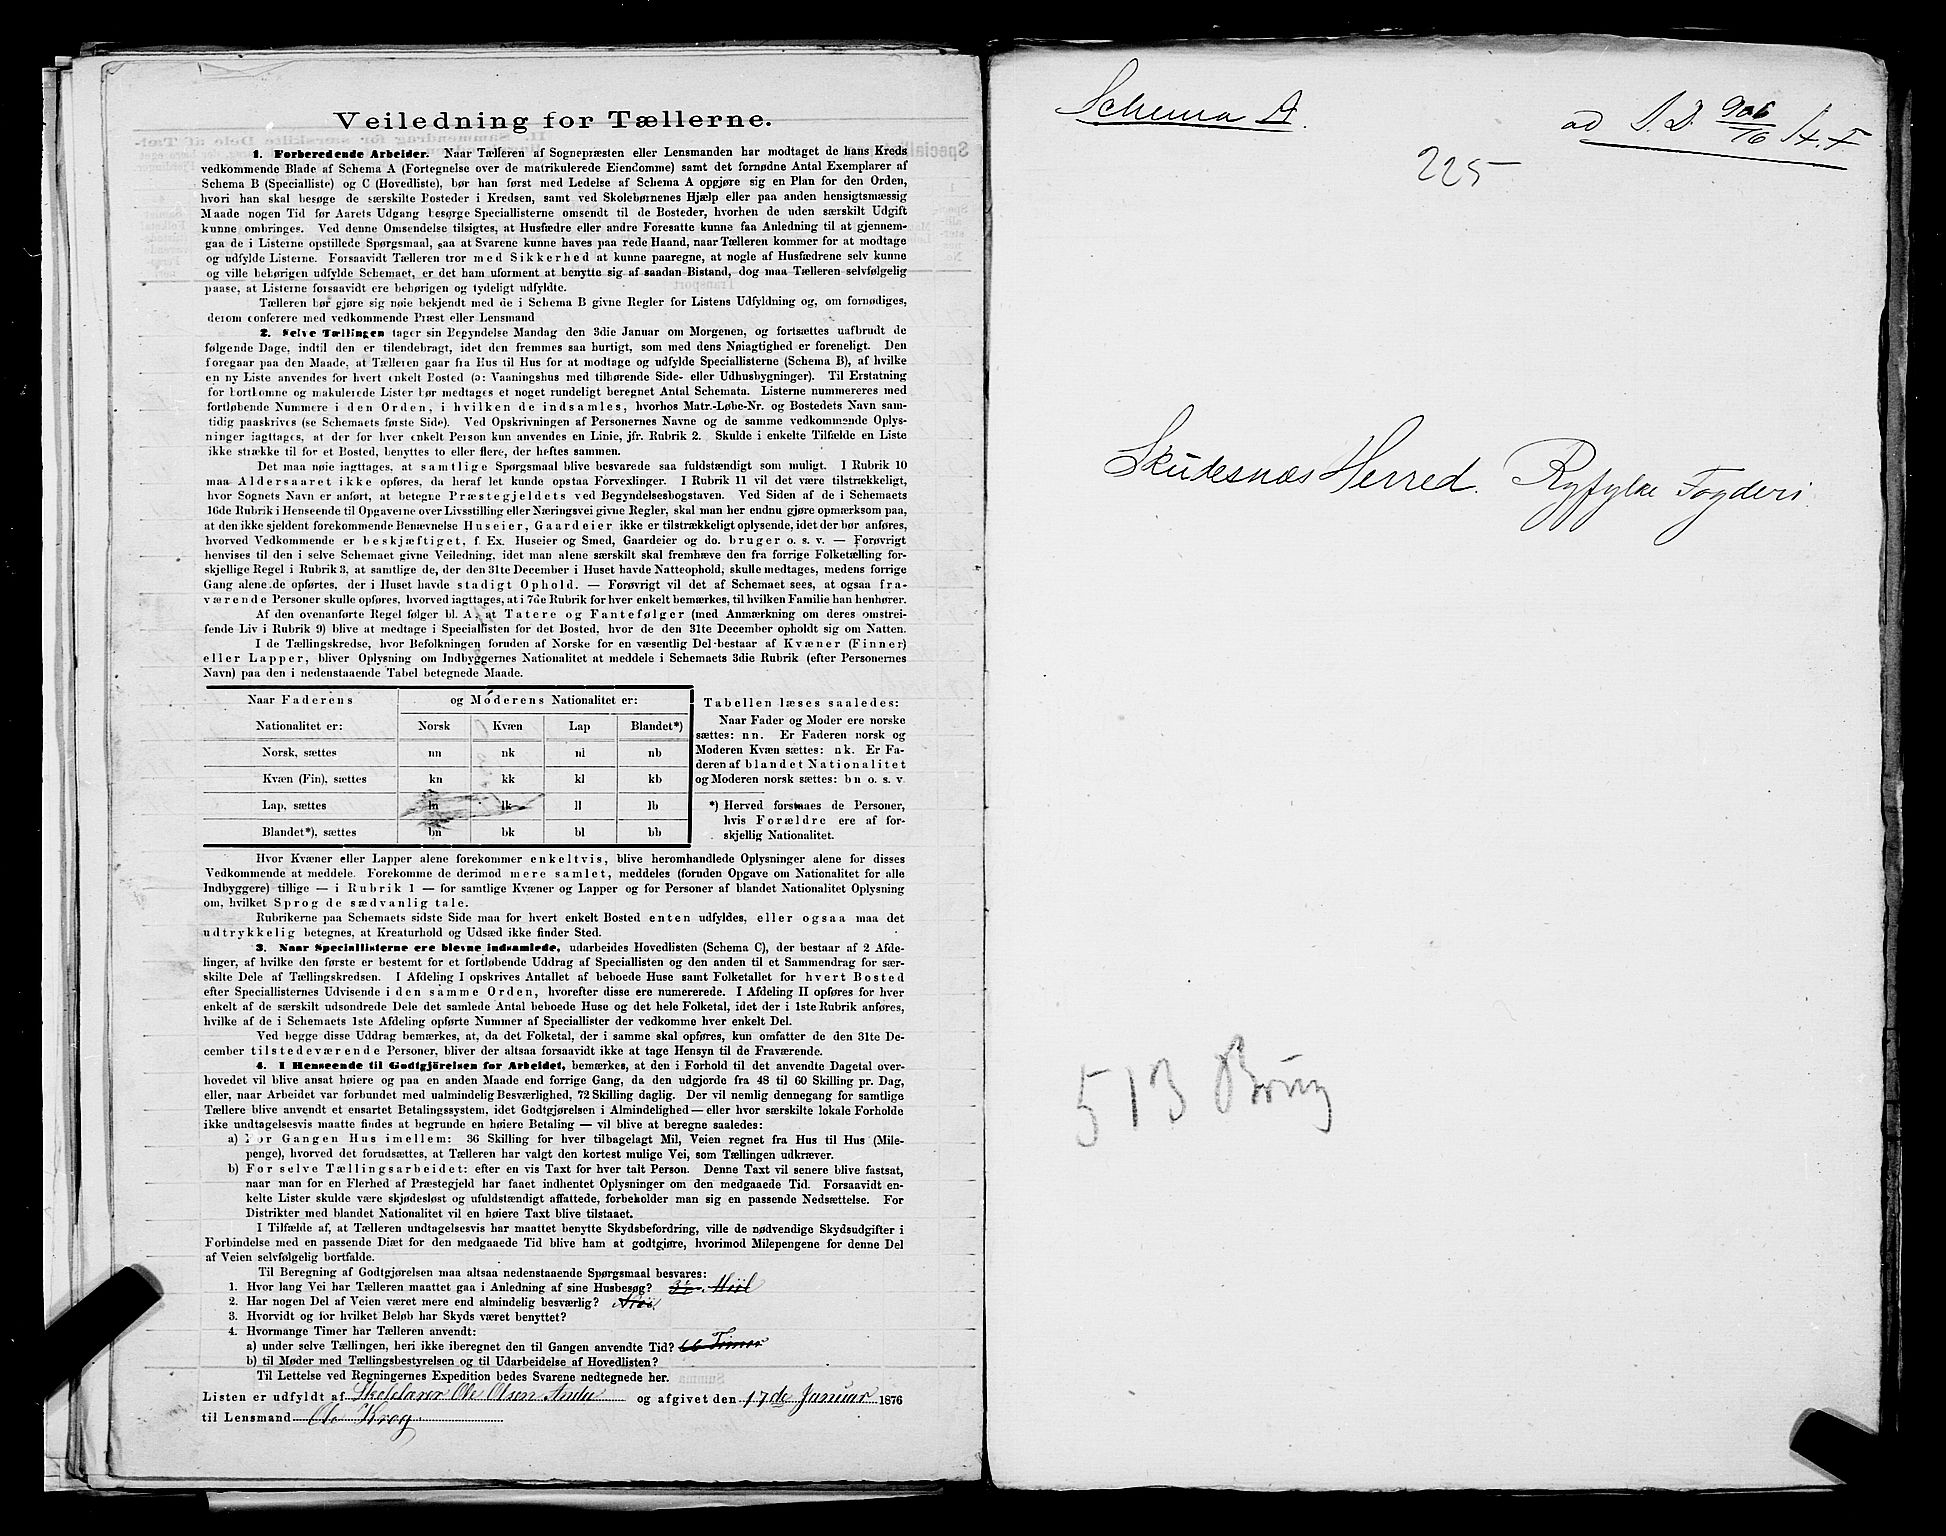 Veiledning for Tællerne.
1. Forberedende Arbeider. Naar Tælleren af Sognepræsten eller Lensmanden har modtaget de hans Kreds
vedkommende Blade af Schema A (Fortegnelse over de matrikulerede Eiendomme) samt det fornødne Antal Exemplarer af
Schema B (Specialliste) og C (Hovedliste), bør han først med Ledelse af Schema A opgjøre sig en Plan for den Orden,
hvori han skal besøge de særskilte Bosteder i Kredsen, samt ved Skolebørnenes Hjælp eller paa anden hensigtsmæssig
Maade nogen Tid før Aarets Udgang besørge Speciallisterne omsendt til de Bosteder, hvorhen de uden særskilt Udgift
kunne ombringes. Ved denne Omsendelse tilsigtes, at Husfædre eller andre Foresatte kunne faa Anledning til at gjennem-
gaa de i Listerne opstillede Spørgsmaal, saa at Svarene kunne haves paa rede Haand, naar Tælleren kommer for at modtage
og udfylde Listerne. Forsaavidt Tælleren tror med Sikkerhed at kunne paaregne, at nogle af Husfædrene selv kunne
og ville behørigen udfylde Schemaet, er det ham uforment at benytte sig af saadan Bistand, dog maa Tælleren selvfølgelig
paase, at Listerne forsaavidt ere behørigen og tydeligt udfyldte.
Tælleren bør gjøre sig nøie bekjendt med de i Schema B givne Regler for Listens Udfyldning og, om fornødiges,
derom conferere med vedkommende Præst eller Lensmand
2. Selve Tællingen tager sin Begyndelse Mandag den 3die Januar om Morgenen, og fortsættes uafbrudt de
følgende Dage, indtil den er tilendebragt, idet den fremmes saa hurtigt, som med dens Nøiagtighed er foreneligt. Den
foregaar paa den Maade, at Tælleren gaar fra Hus til Hus for at modtage og udfylde Speciallisterne (Schema B), af hvilke
en ny Liste anvendes for hvert enkelt Bosted (ɔ: Vaaningshus med tilhørende Side- eller Udhusbygninger). Til Erstatning
for bortkomne og makulerede Lister bør medtages et noget rundeligt beregnet Antal Schemata. Listerne nummereres med
fortløbende Nummere i den Orden, i hvilken de indsamles, hvorhos Matr.-Løbe-Nr. og Bostedets Navn sam-
tidig paaskrives (se Schemaets første Side). Ved Opskrivningen af Personernes Navne og de samme vedkommende Oplys-
ninger iagttages, at der for hver enkelt Person kun anvendes en Linie, jfr. Rubrik 2. Skulde i enkelte Tilfælde en Liste
ikke strække til for et Bosted, benyttes to eller flere, der heftes sammen.
Det maa nøie iagttages, at samtlige Spørgsmaal blive besvarede saa fuldstændigt som muligt. I Rubrik 10
maa Aldersaaret ikke opføres, da heraf let kunde opstaa Forvexlinger. I Rubrik 11 vil det være tilstrækkeligt,
hvor Sognets Navn er anført, at betegne Præstegjeldets ved Begyndelsesbogstaven. Ved Siden af de i Schemaets
16de Rubrik i Henseende til Opgaverne over Livsstilling eller Næringsvei givne Regler, skal man her endnu gjøre opmærksom paa,
at den ikke sjeldent forekommende Benævnelse Huseier, Gaardeier ikke er tilstrækkeligt oplysende, idet der bør anføres,
hvorved Vedkommende er beskjæftiget, f. Ex. Huseier og Smed, Gaardeier og do. bruger o. s. v. — Forøvrigt
henvises til den i selve Schemaet givne Veiledning, idet man alene særskilt skal fremhæve den fra forrige Folketælling for-
skjellige Regel i Rubrik 3, at samtlige de, der den 31te December i Huset havde Natteophold, skulle medtages, medens forrige
Gang alene de opførtes, der i Huset havde stadigt Ophold. — Forøvrigt vil det af Schemaet sees, at ogsaa fra-
værende Personer skulle opføres, hvorved iagttages, at i 7de Rubrik for hver enkelt bemærkes, til hvilken Familie han henhører.
Af den ovenanførte Regel følger bl. A. at Tatere og Fantefølger (med Anmærkning om deres omstrei-
fende Liv i Rubrik 9) blive at medtage i Speciallisten for det Bosted, hvor de den 31te December opholdt sig om Natten.
I de Tællingskredse, hvor Befolkningen foruden af Norske for en væsentlig Del bestaar af Kvæner (Finner)
eller Lapper, bliver Oplysning om Indbyggernes Nationalitet at meddele i Schemaets 3die Rubrik (efter Personernes
Navn) paa den i nedenstaaende Tabel betegnede Maade.
Naar Faderens og Moderens Nationalitet er:
Nationalitet er: Norsk Kvæn Lap Blandet*)
Norsk, sættes nn nk nl nb
Kvæn (Fin), sættes kn kk kl kb
Lap, sættes ln lk ll lb
Blandet*), sættes bn bk bl bb
Tabellen læses saaledes:
Naar Fader og Moder ere norske
sættes: nn. Er Faderen norsk og
Moderen Kvæn sættes: nk. Er Fa-
deren af blandet Nationalitet
og Moderen norsk sættes: bn o. s. v.
*) Herved forstaaes de Personer,
hvis Forældre ere af for-
skjellig Nationalitet.
Hvor Kvæner eller Lapper alene forekommer enkeltvis, blive heromhandlede Oplysninger alene for disses
Vedkommende at meddele. Forekomme de derimod mere samlet, meddeles (foruden Opgave om Nationalitet for alle
Indbyggere) tillige — i Rubrik 1 — for samtlige Kvæner og Lapper og for Personer af blandet Nationalitet Oplysning
om, hvilket Sprog de sædvanlig tale.
Rubrikerne paa Schemaets sidste Side maa for hvert enkelt Bosted enten udfyldes, eller ogsaa maa det
udtrykkelig betegnes, at Kreaturhold og Udsæd ikke finder Sted.
3. Naar Speciallisterne ere blevne indsamlede, udarbeides Hovedlisten (Schema C), der bestaar af 2 Afde-
linger, af hvilke den første er bestemt for et fortløbende Uddrag af Speciallisten og den anden til et Sammendrag for sær-
skilte Dele af Tællingskredsen. I Afdeling I opskrives Antallet af beboede Huse samt Folketallet for hvert Bosted
efter Speciallisternes Udvisende i den samme Orden, hvorefter disse ere numererede. I Afdeling II opføres for hver
enkelt af de særskilt udsondrede Dele det samlede Antal beboede Huse og det hele Folketal, idet der i 1ste Rubrik anføres,
hvilke af de i Schemaets 1ste Afdeling opførte Nummer af Speciallister der vedkomme hver enkelt Del.
Ved begge disse Uddrag bemærkes, at, da det Folketal, der i samme skal opføres, kun omfatter de den 31te De-
cember tilstedeværende Personer, bliver der altsaa forsaavidt ikke at tage Hensyn til de Fraværende.
4. I Henseende til Godtgjörelsen for Arbeidet, bemærkes, at den i Forhold til det anvendte Dagetal over-
hovedet vil blive ansat høiere og paa en anden Maade end forrige Gang, da den udgjorde fra 48 til 60 Skilling pr. Dag,
eller, naar Arbeidet var forbundet med ualmindelig Besværlighed, 72 Skilling daglig. Der vil nemlig dennegang for samtlige
Tællere blive anvendt et ensartet Betalingssystem, idet Godtgjørelsen i Almindelighed — eller hvor særskilte lokale Forholde
ikke undtagelsesvis maatte findes at begrunde en høiere Betaling — vil blive at beregne saaledes:
a) For Gangen Hus imellem: 36 Skilling for hver tilbagelagt Mil, Veien regnet fra Hus til Hus (Mile-
penge), hvorved det forudsættes, at Tælleren har valgt den kortest mulige Vei, som Tællingen udkræver.
b) For selve Tællingsarbeidet: efter en vis Taxt for hver talt Person. Denne Taxt vil senere blive fastsat,
naar man for en Flerhed af Præstegjeld har faaet indhentet Oplysninger om den medgaaede Tid. Forsaavidt en-
kelte Lister skulde være skjødesløst og ufuldstændigt affattede, forbeholder man sig en passende Nedsættelse. For
Distrikter med blandet Nationalitet vil en høiere Taxt blive tilstaaet.
I Tilfælde af, at Tælleren undtagelsesvis har maattet benytte Skydsbefordring, ville de nødvendige Skydsudgifter i
Forbindelse med en passende Diæt for den medgaaede Tid blive ham at godtgjøre, hvorimod Milepengene for denne Del
af Veien selvfølgelig bortfalde.
Til Beregning af Godtgjørelsen maa altsaa nedenstaaende Spørgsmaal besvares:
1. Hvor lang Vei har Tælleren maattet gaa i Anledning af sine Husbesøg?
2. Har nogen Del af Veien været mere end almindelig besværlig?
3. Hvorvidt og for hvilket Beløb har Skyds været benyttet?
4. Hvormange Timer har Tælleren anvendt:
a) under selve Tællingen, heri ikke iberegnet den til Gangen anvendte Tid? 66 Timer
b) til Møder med Tællingsbestyrelsen og til Udarbeidelse af Hovedlisten?
Til Lettelse ved Regningernes Expedition bedes Svarene nedtegnede her.
Listen er udfyldt af Skolelærer Ole Olsen og afgivet den 17de Januar 1876
til Lensmand Ole Krog
Schema A.
ad J. D. 906/76 H. F
225
Skudesnæs Herred. Ryfylke Fogderi.
513 Brug